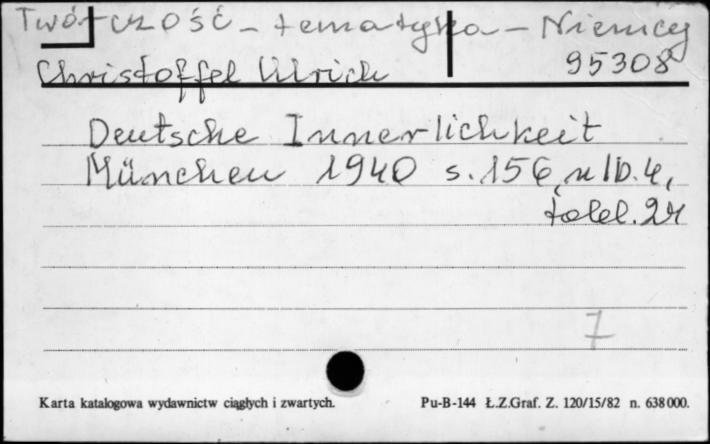 Twórczość - tematyka - Niemcy
Christoffel Ulrich 95308
Deutsche Innerlichkeit
München 1940 s. 156, 4,
tabl. 24
7
Karta katalogowa wydawnictw ciągłych i zwartych. Pu-B-144 Ł.Z.Graf. Z. 120/15/82 n. 638 000.